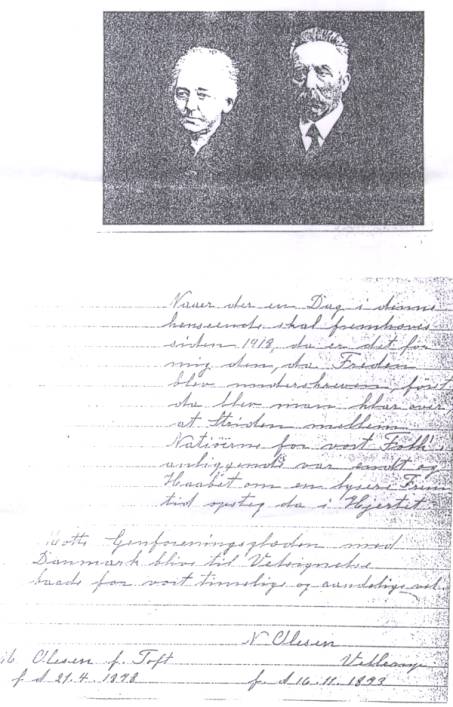 Naar der en Dag i denne
henseende skal fremhæves
siden 1918, da er det for
mig den, da Freden
blev underskreven, først
da blev man klar over,
at Striden mellem
Natiöerne for vort Folk
anliggende var endt og
Haabet om en lysere Frem
tid opsteg da i Hjertet.
Motte Genforeningsglæden med
Danmark blive til Velsignelse
baade for vort timelige og aandelige vel.
N Olesen
Olesen f. Toft
f. d 16.11.